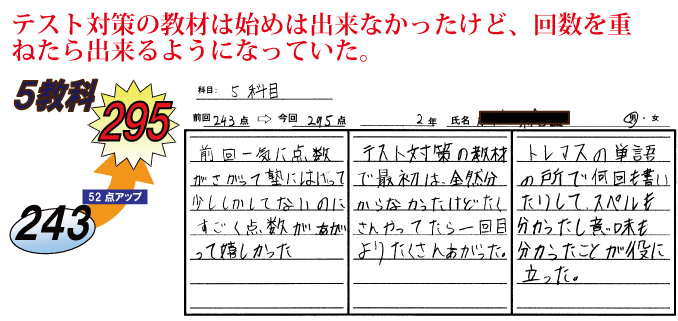 テスト対策の教材は始めは出来なかったけど、回数を重
ねたら出来るようになっていた。
5教科
295
52点アップ
243
科目: 5科目
前回 243点 ⇨ 今回 295点 2年 氏名 男・女
前回一気に点数
がさがって塾にはいって
少ししかしてないのに
すごく点数があが
って嬉しかった
テスト対策の教材
で最初は、全然分
からなかったけどたく
さんやってたら一回目
よりたくさんあがった。
トレマスの単語
の所で何回も書い
たりして、スペルも
分かったし意味も
分かったことが役に
立った。